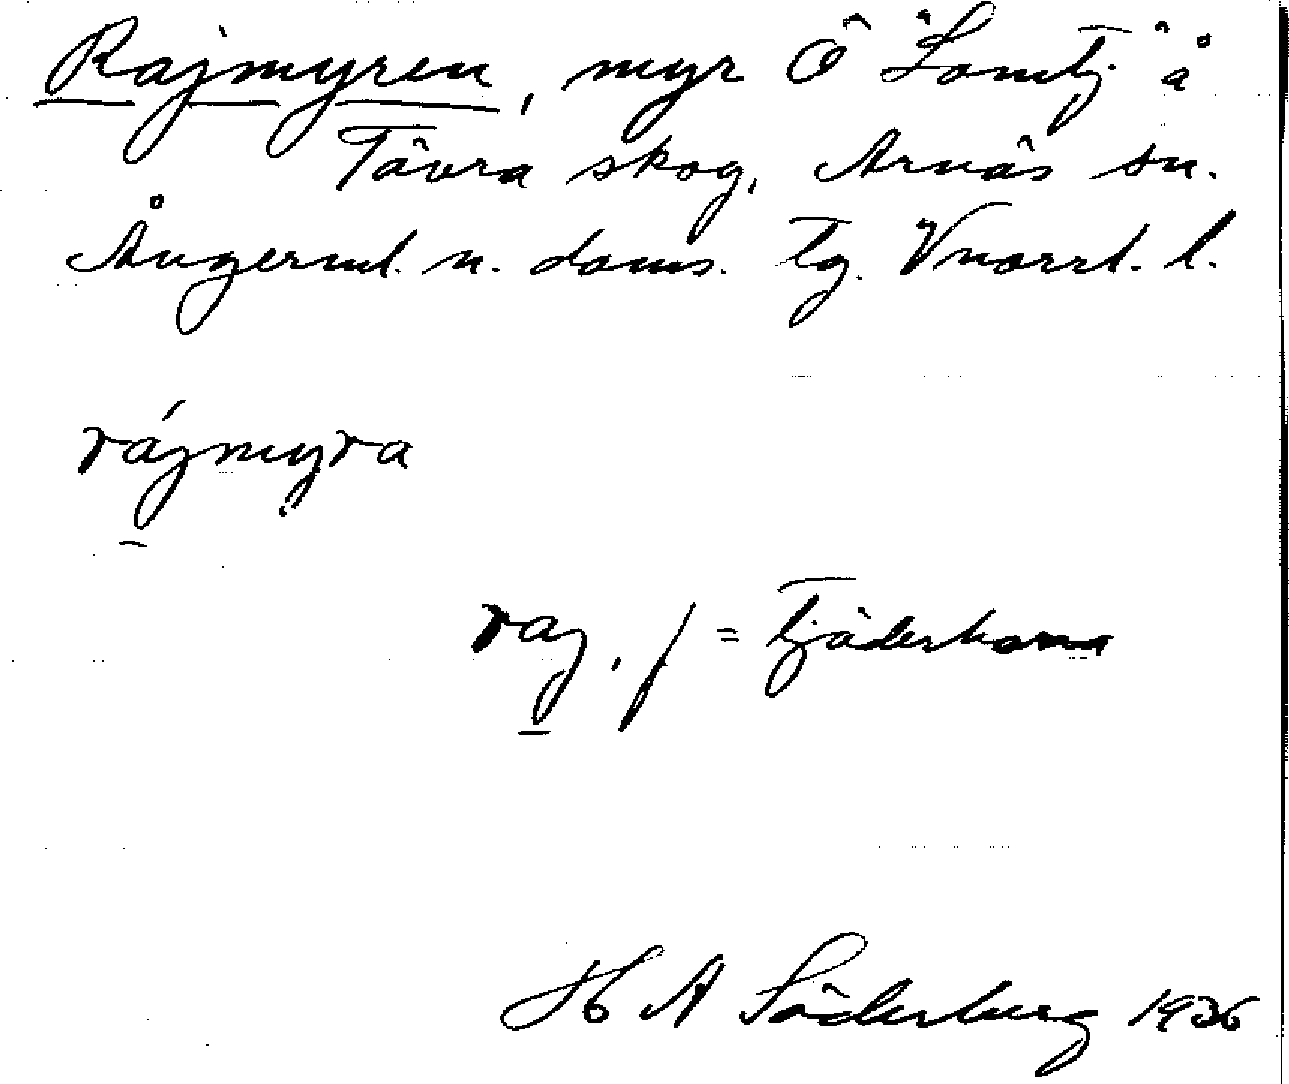 Rajmyren, myr Ö Lomtj. å
Tävra skog, Arnäs sn.
Ångerml. n. doms. Tg. Vnorrl. l.
rájmyra
raj, f = tjäderhona
H A Söderberg 1936